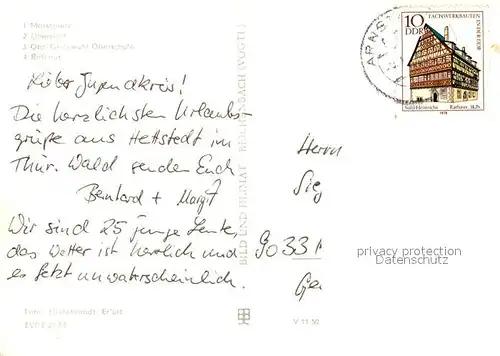 1 Marktplatz
2 Übersicht
3 Otto-Grotewohl-Oberschule
4 Rathaus
Lieber Jugendkreis!
Die herzlichsten Urlaubs-
grüße aus Hettstedt im
Thür. Wald senden Euch
Bernhard + Margit
Wir sind 25 junge Leute,
das Wetter ist herrlich und
es fetzt unwahrscheinlich.
Erfurt
BILD UND HEIMAT
(VOGTL)
V 11 50
ARNST
10
DDR
FACHWERKBAUTEN
IN DER DDR
Suhl-Heinrichs Rathaus
1978
Herrn
9033
privacy protection
Datenschutz